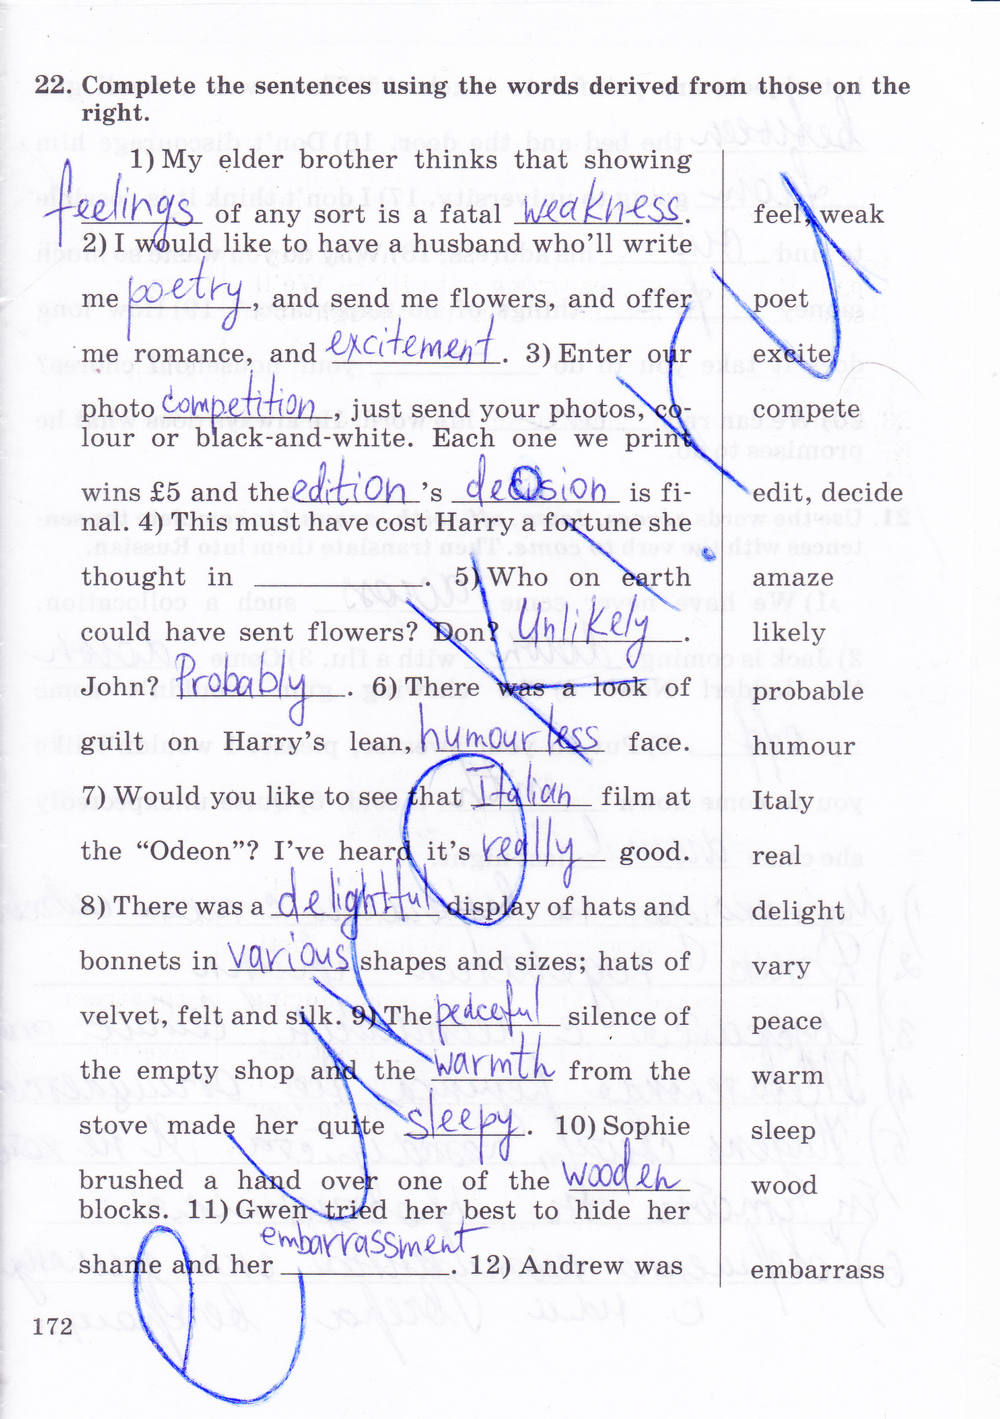 22. Complete the sentences using the words derived from those on the
right.
1) My elder brother thinks that showing
feelings of any sort is a fatal weakness. feel, weak
2) I would like to have a husband who'll write
me poetry, and send me flowers, and offer poet
me romance, and excitement. 3) Enter our excite
photo competition, just send your photos, co- compete
lour or black-and-white. Each one we print
wins £5 and the edition's decision is fi- edit, decide
nal. 4) This must have cost Harry a fortune she
thought in ____. 5) Who on earth amaze
could have sent flowers? Don? Unlikely. likely
John? Probably. 6) There was a look of probable
guilt on Harry's lean, humourless face. humour
7) Would you like to see that Italian film at Italy
the “Odeon”? I've heard it's really good. real
8) There was a delightful display of hats and delight
bonnets in various shapes and sizes; hats of vary
velvet, felt and silk. 9) The peaceful silence of peace
the empty shop and the warmth from the warm
stove made her quite sleepy. 10) Sophie sleep
brushed a hand over one of the wooden wood
blocks. 11) Gwen tried her best to hide her
shame and her embarrassment. 12) Andrew was embarrass
172